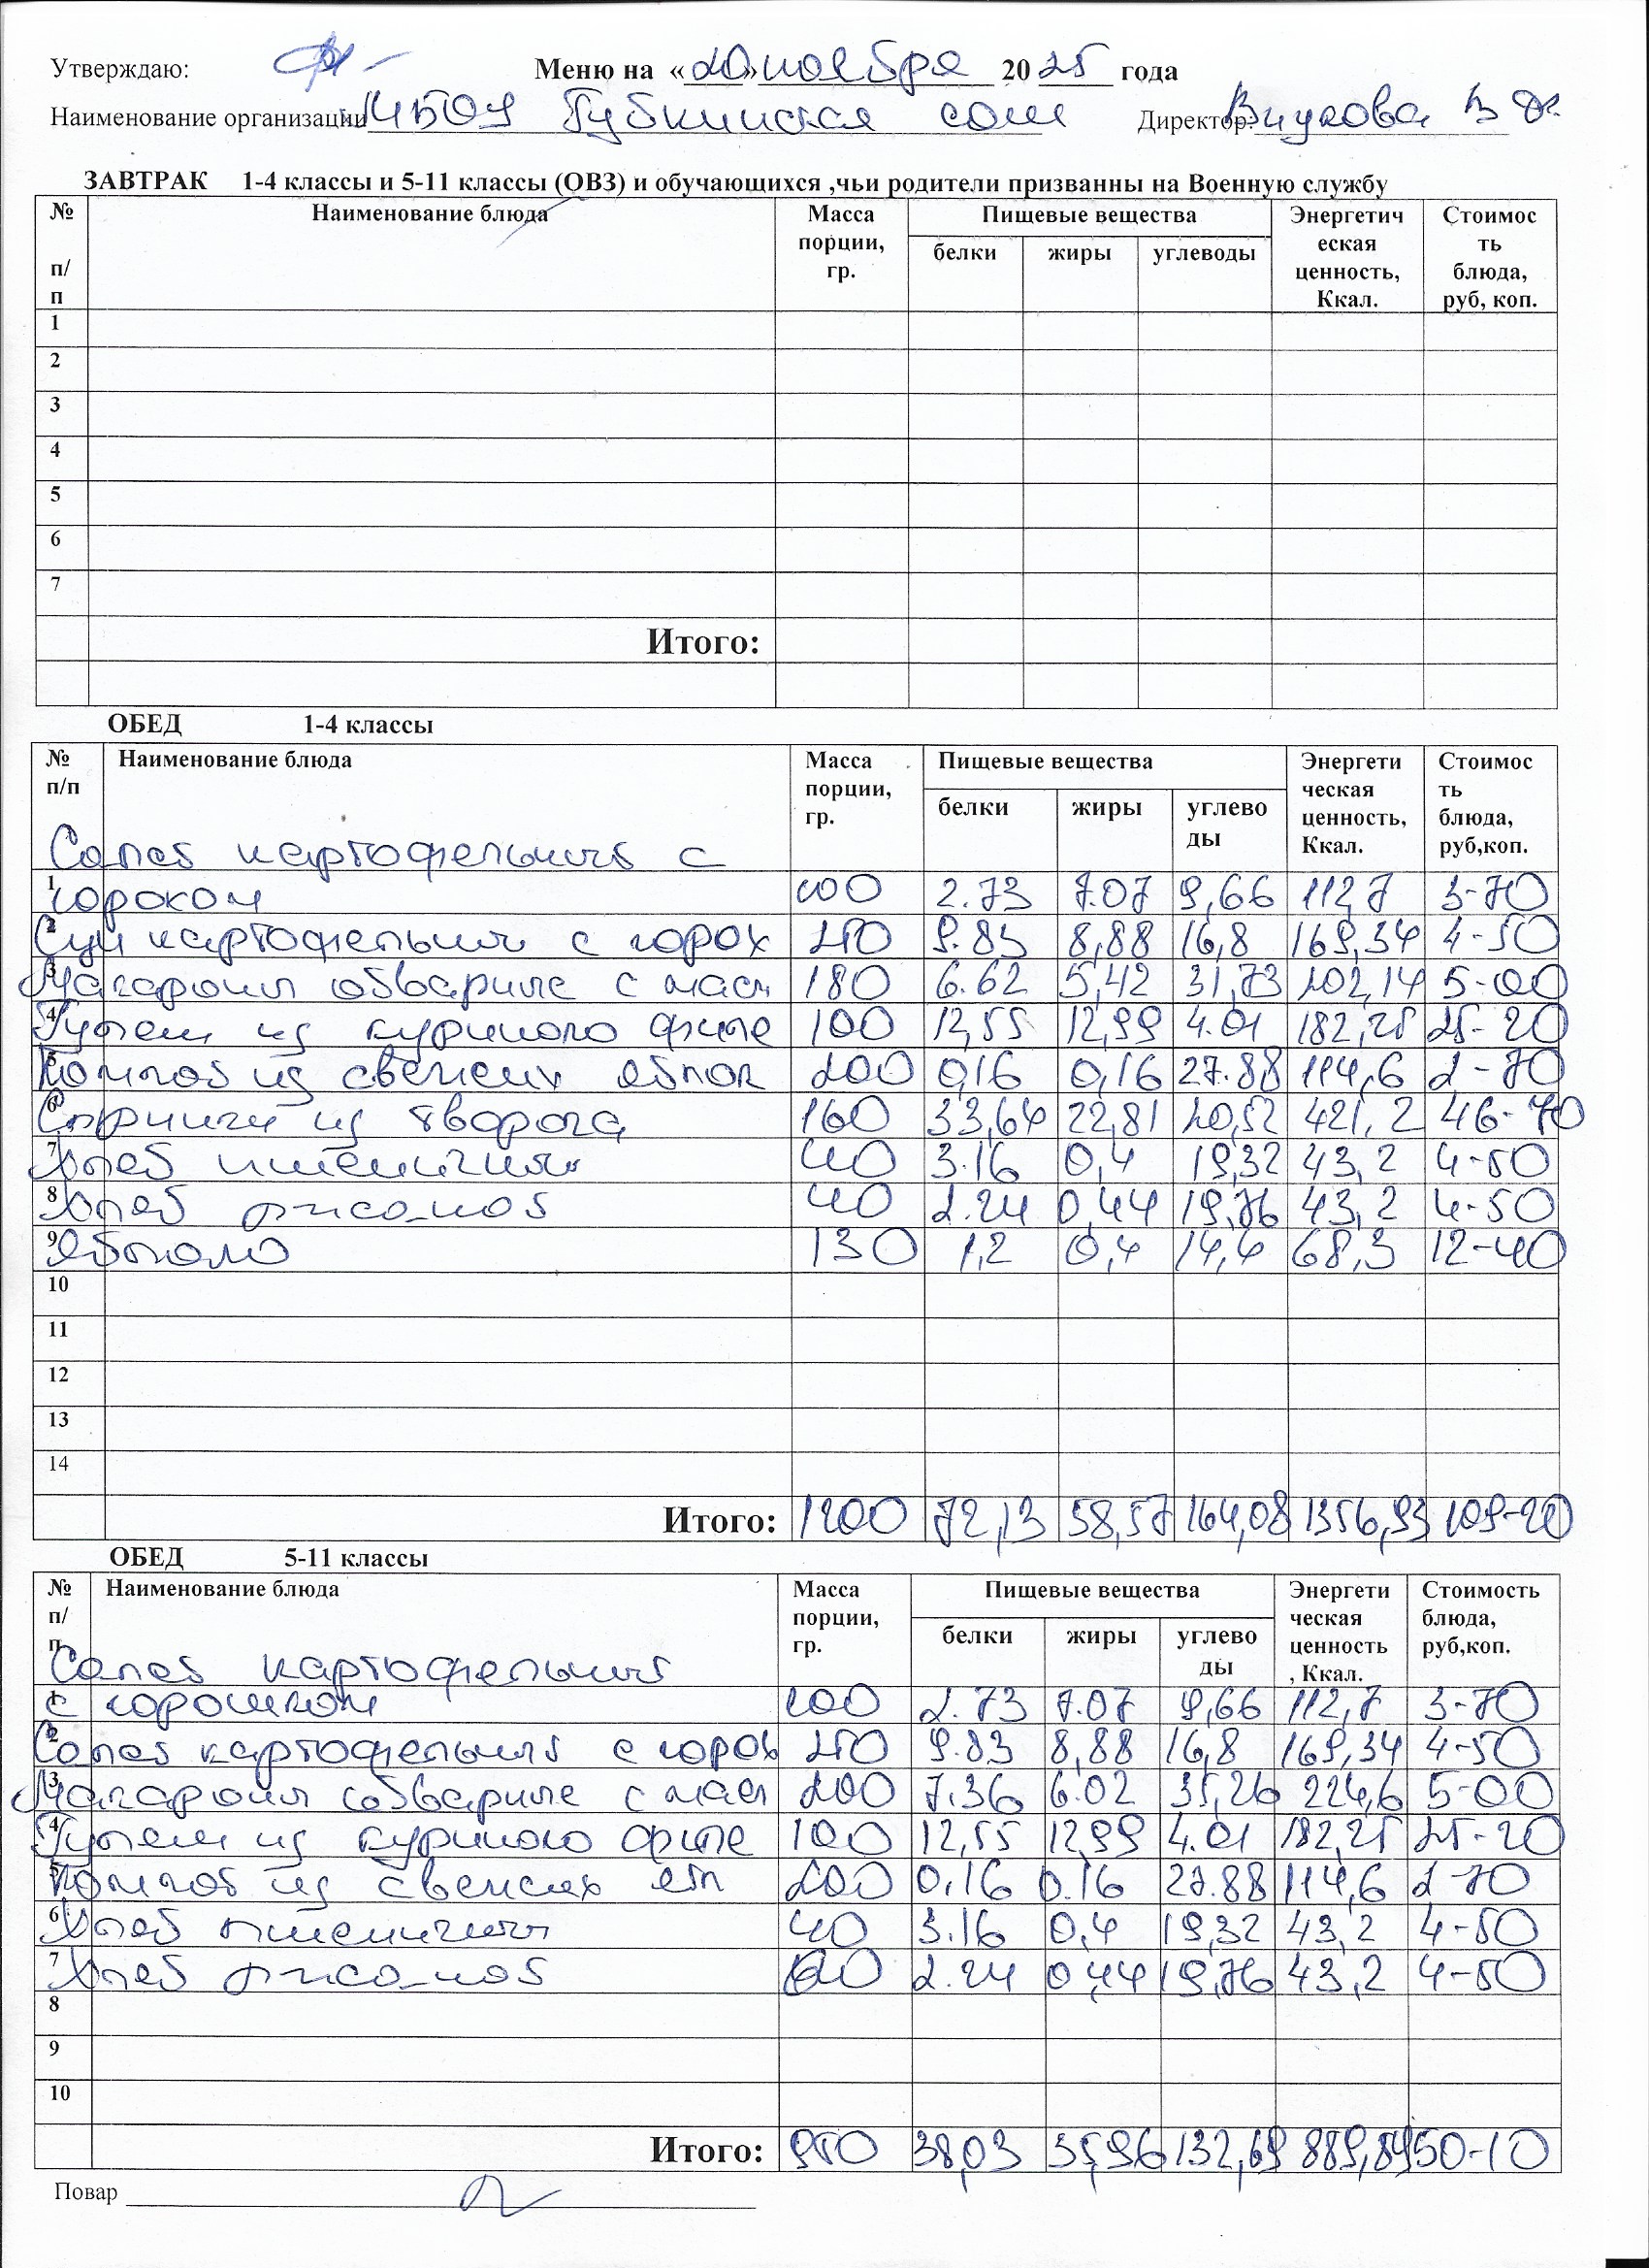 Утверждаю: Меню на «20» ноября 2025 года
Наименование организации МБОУ Губкинская сош Директор: Внукова В
ЗАВТРАК 1-4 классы и 5-11 классы (ОВЗ) и обучающихся ,чьи родители призванны на Военную службу
№ п/п Наименование блюда Масса порции, гр. Пищевые вещества Энергетическая ценность, Ккал. Стоимость блюда, руб, коп.
белки жиры углеводы
1
2
3
4
5
6
7
Итого:
ОБЕД 1-4 классы
№ п/п Наименование блюда Масса порции, гр. Пищевые вещества Энергетическая ценность, Ккал. Стоимость блюда, руб,коп.
белки жиры углеводы
Салат картофельный с
1 горохом 100 2.73 7.07 9,66 112,7 3-70
2 Суп картофельный с горох 250 9.83 8,88 16,8 169,34 4-50
3 Макароны обварные с масл 180 6.62 5,42 31,73 202,14 5-00
4 Гуляш из куриного филе 100 12,55 12,99 4.01 182,25 25-20
5 Компот из свежих яблок 200 0,16 0,16 27.88 114,6 2-70
6 из творога 160 33,64 22,81 20,52 421,2 46-70
7 Хлеб пшеничный 40 3.16 0,4 19,32 43,2 4-50
8 Хлеб ржано-пш 40 2.24 0,44 19,76 43,2 4-50
9 Яблоко 130 1,2 0,4 14,4 68,3 12-40
10
11
12
13
14
Итого: 1200 72,13 58,57 164,08 1356,93 109-20
ОБЕД 5-11 классы
№ п/п Наименование блюда Масса порции, гр. Пищевые вещества Энергетическая ценность, Ккал. Стоимость блюда, руб,коп.
белки жиры углеводы
Салат картофельный
1 с горошком 100 2.73 7.07 9,66 112,7 3-70
2 Салат картофельный с горох 250 9.83 8,88 16,8 169,34 4-50
3 Макароны обварные с масл 200 7.36 6.02 35,26 224,6 5-00
4 Гуляш из куриного филе 100 12,55 12,99 4.01 182,25 25-20
5 Компот из свежих ябл 200 0,16 0.16 27.88 114,6 2-70
6 Хлеб пшеничный 40 3.16 0,4 19,32 43,2 4-50
7 Хлеб ржано-пш 60 2.24 0,44 19,76 43,2 4-50
8
9
10
Итого: 950 38,03 35,96 132,69 889,89 50-10
Повар